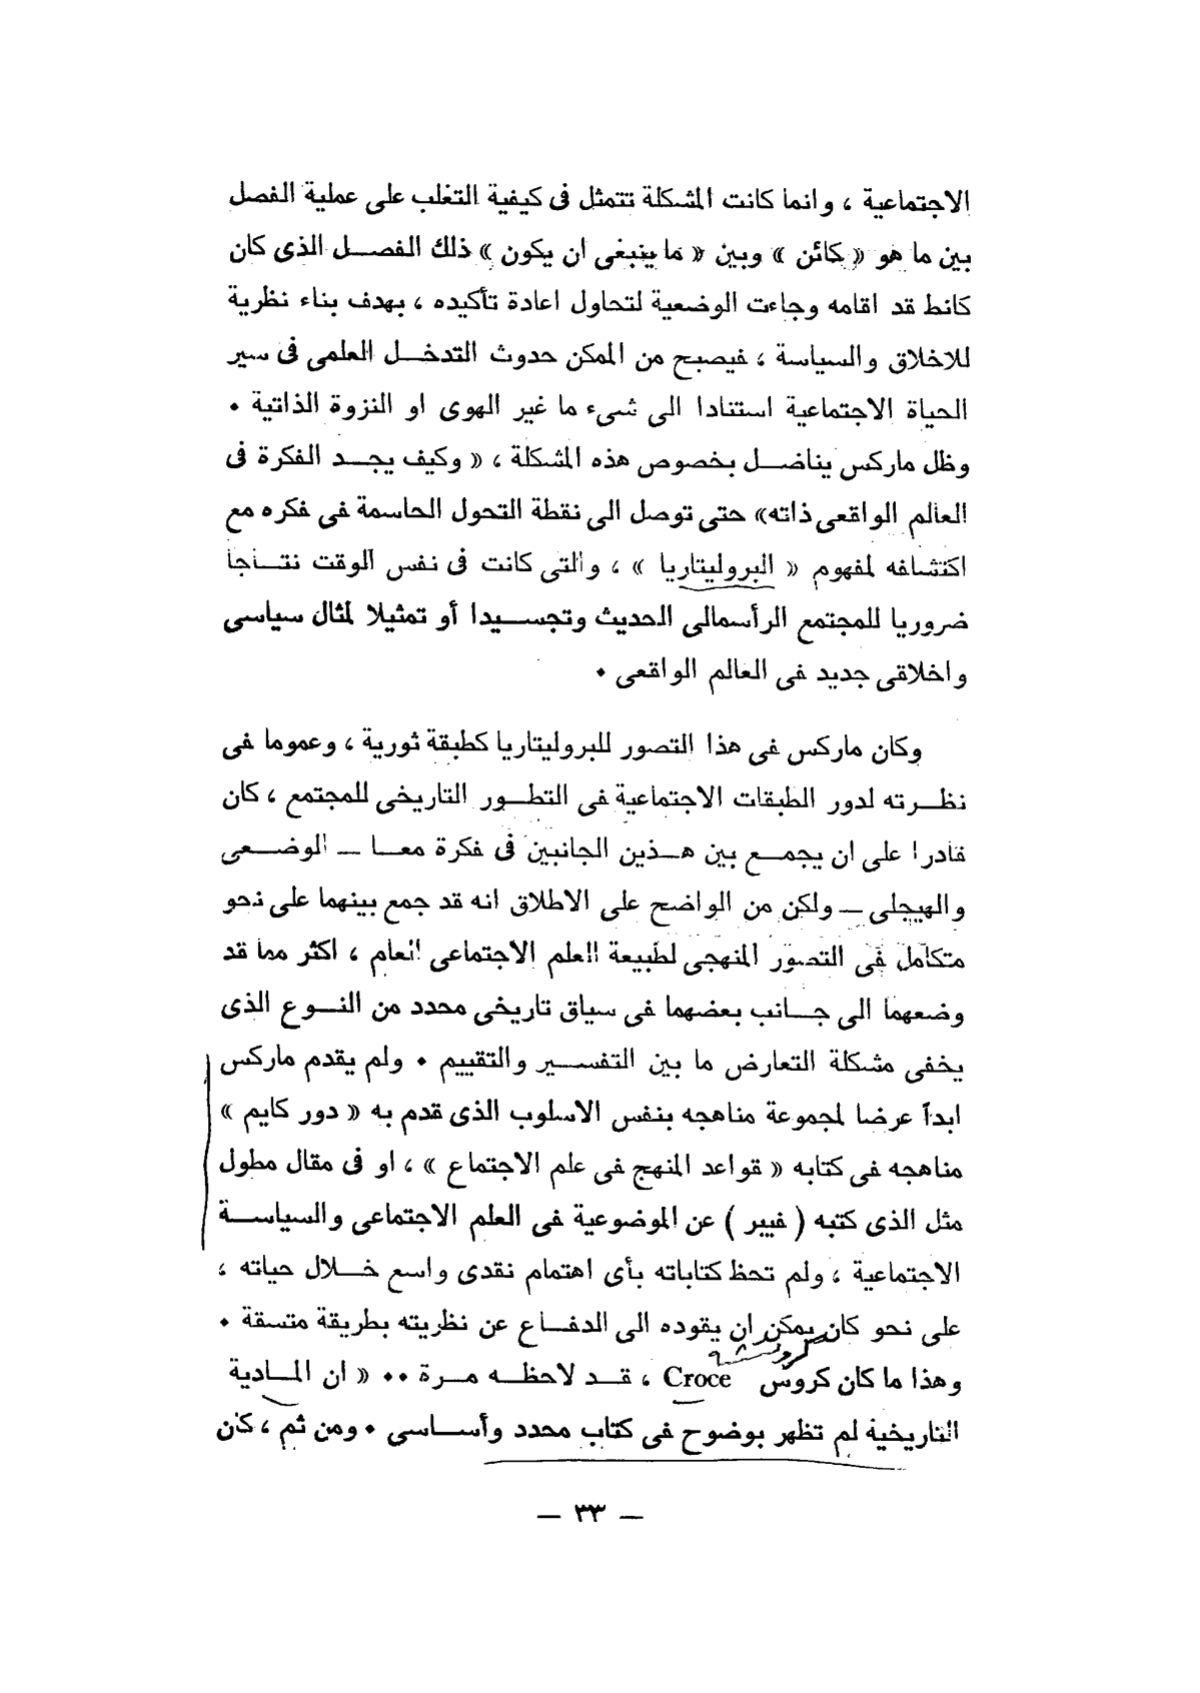 الاجتماعية ، وانما كانت المشكلة تتمثل فى كيفية التغلب على عملية الفصل
بين ما هو « كائن » وبين « ما ينبغى ان يكون » ذلك الفصل الذى كان
كانط قد اقامه وجاءت الوضعية لتحاول اعادة تأكيده ، بهدف بناء نظرية
للاخلاق والسياسة ، فيصبح من الممكن حدوث التدخل العلمى فى سير
الحياة الاجتماعية استنادا الى شىء ما غير الهوى او النزوة الذاتية •
وظل ماركس يناضل بخصوص هذه المشكلة ، « وكيف يجد الفكرة فى
العالم الواقعى ذاته» حتى توصل الى نقطة التحول الحاسمة فى فكره مع
اكتشافه لمفهوم « البروليتاريا » ، والتى كانت فى نفس الوقت نتاجا
ضروريا للمجتمع الرأسمالى الحديث وتجسيدا أو تمثيلا لمثال سياسى
واخلاقى جديد فى العالم الواقعى •
وكان ماركس فى هذا التصور للبروليتاريا كطبقة ثورية ، وعموما فى
نظرته لدور الطبقات الاجتماعية فى التطور التاريخى للمجتمع ، كان
قادرا على ان يجمع بين هذين الجانبين فى فكرة معا — الوضعى
والهيجلى — ولكن من الواضح على الاطلاق انه قد جمع بينهما على نحو
متكامل فى التصور المنهجى لطبيعة العلم الاجتماعى العام ، اكثر مما قد
وضعهما الى جانب بعضهما فى سياق تاريخى محدد من النوع الذى
يخفى مشكلة التعارض ما بين التفسير والتقييم • ولم يقدم ماركس
ابداً عرضا لمجموعة مناهجه بنفس الاسلوب الذى قدم به « دور كايم »
مناهجه فى كتابه « قواعد المنهج فى علم الاجتماع » ، او فى مقال مطول
مثل الذى كتبه ( فيبر ) عن الموضوعية فى العلم الاجتماعى والسياسة
الاجتماعية ، ولم تحظ كتاباته بأى اهتمام نقدى واسع خلال حياته ،
على نحو كان يمكن ان يقوده الى الدفاع عن نظريته بطريقة متسقة •
كروتشه
وهذا ما كان كروس Croce ، قد لاحظه مرة •• « ان المادية
التاريخية لم تظهر بوضوح فى كتاب محدد وأساسى • ومن ثم ، كان
— ٣٣ —